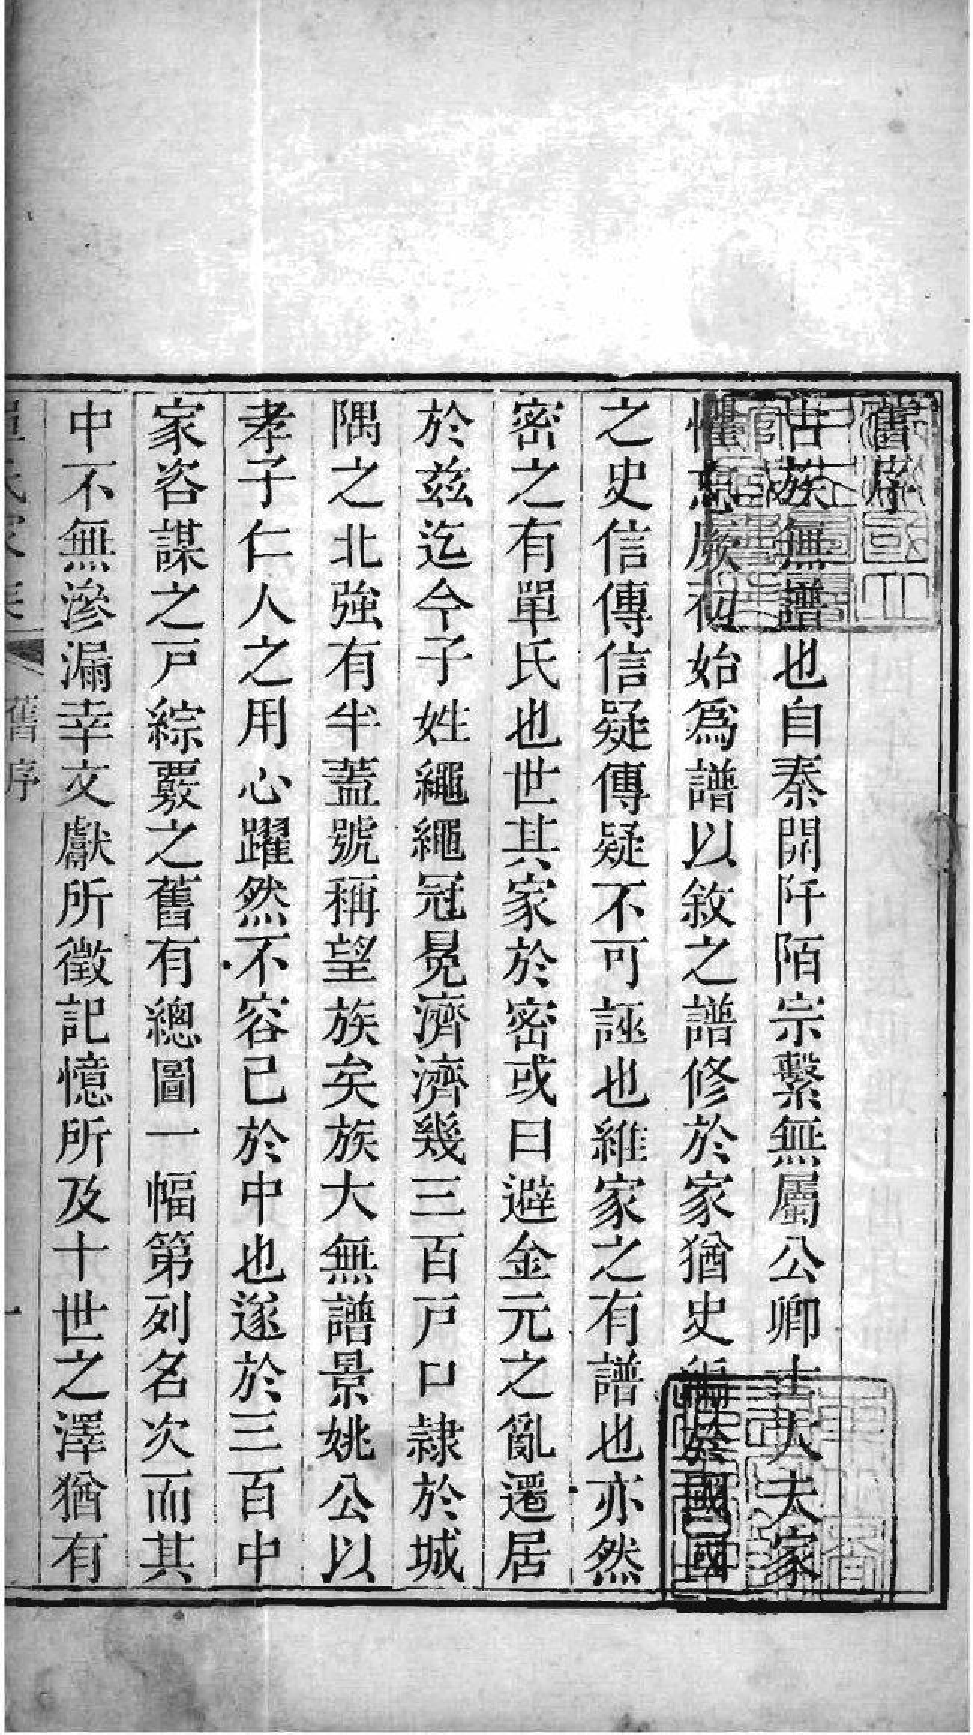 舊序
古族無譜也自秦開阡陌宗繫無屬公卿士大夫家
懼忘厥初始爲譜以敘之譜修於家猶史編於國國
之史信傳信疑傳疑不可誣也維家之有譜也亦然
密之有單氏也世其家於密或曰避金元之亂遷居
於兹迄今子姓繩繩冠冕濟濟幾三百戸口隷於城
隅之北強有半蓋號稱望族矣族大無譜景姚公以
孝子仁人之用心躍然不容已於中也遂於三百中
家咨謀之戸綜覈之舊有總圖一幅第列名次而其
中不無滲漏幸文獻所徵記憶所及十世之澤猶有
單氏家乘 舊序 一